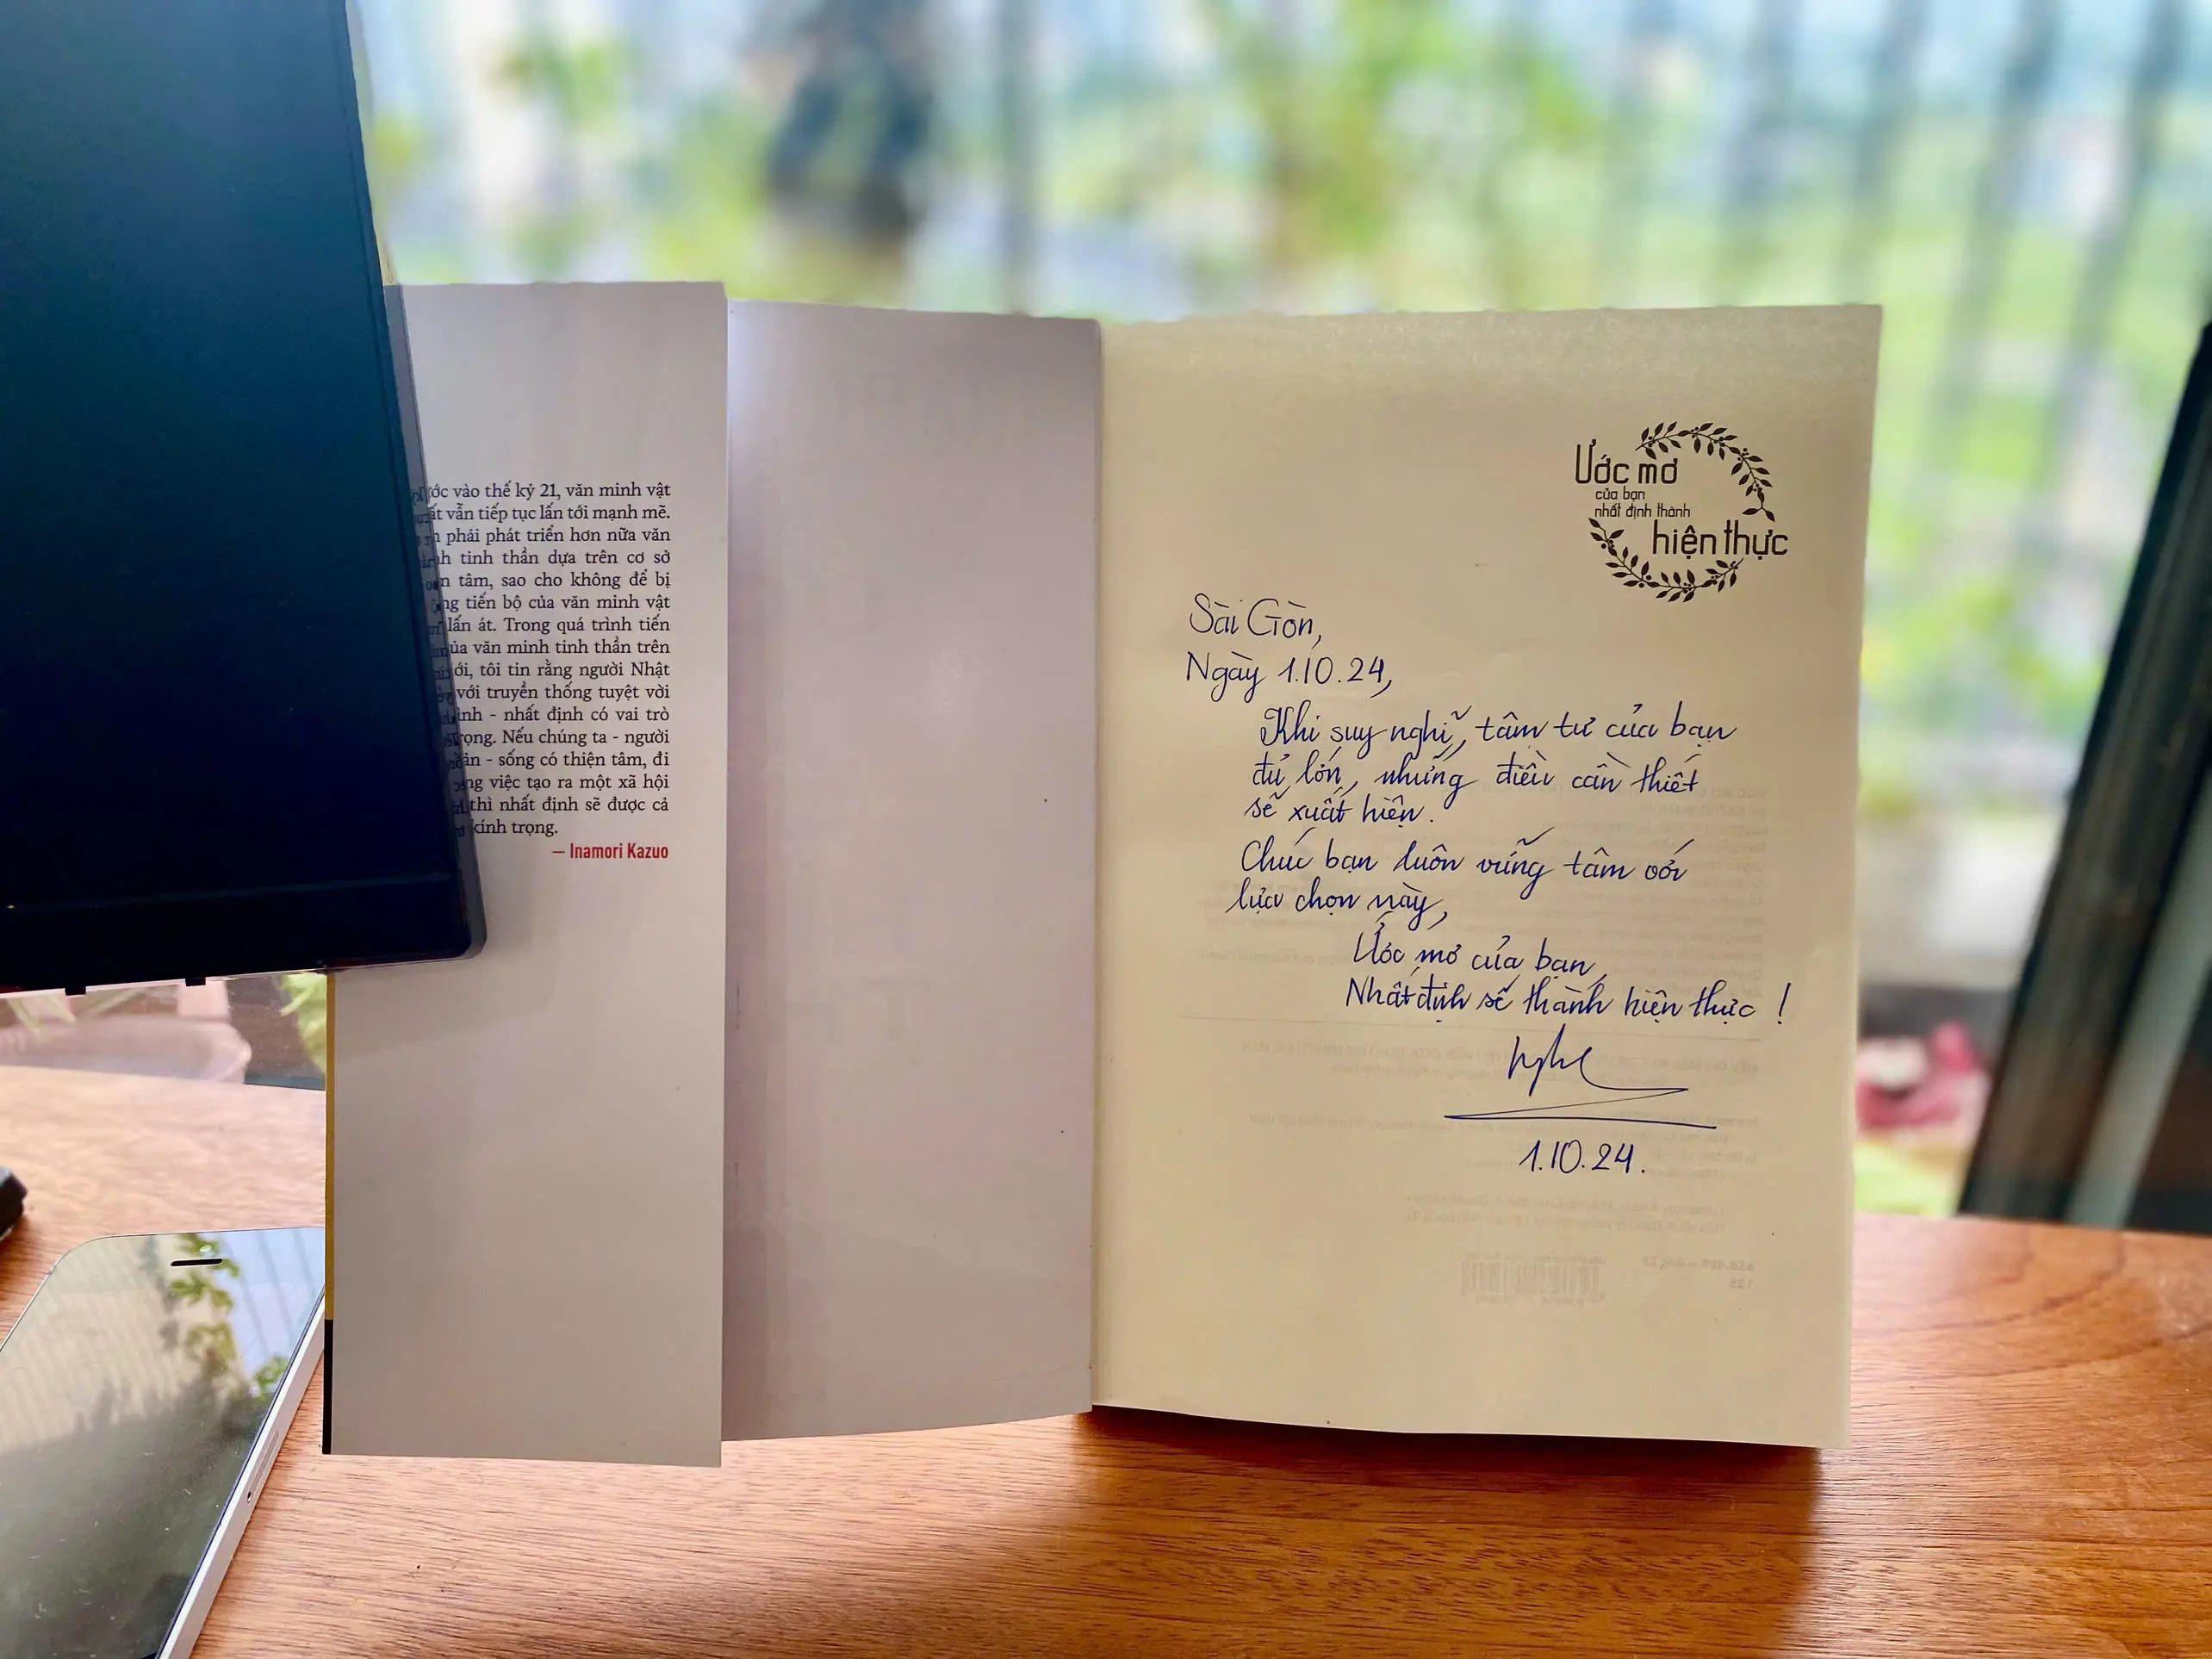 vào thế kỷ 21, văn minh vật
vẫn tiếp tục lấn tới mạnh mẽ.
phải phát triển hơn nữa văn
tinh thần dựa trên cơ sở
tâm, sao cho không để bị
tiến bộ của văn minh vật
lấn át. Trong quá trình tiến
của văn minh tinh thần trên
tôi tin rằng người Nhật
với truyền thống tuyệt vời
- nhất định có vai trò
trọng. Nếu chúng ta - người
- sống có thiện tâm, đi
việc tạo ra một xã hội
thì nhất định sẽ được cả
kính trọng.
— Inamori Kazuo
Ước mơ
của bạn
nhất định thành
hiện thực
Sài Gòn,
Ngày 1.10.24,
Khi suy nghĩ, tâm tư của bạn
đủ lớn, những điều cần thiết
sẽ xuất hiện.
Chúc bạn luôn vững tâm với
lựa chọn này,
Ước mơ của bạn,
Nhất định sẽ thành hiện thực !
1.10.24.